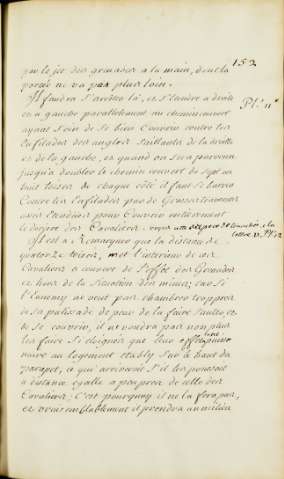 152
par le jet des grenades a la main, dont la
portée ne va pas plus loin.
Il faudra s'arrêter là, et s'étendre a droite
et a gauche parallelement au cheminement
Pl. 11e
ayant soin de se bien couvrir contre les
enfilades des angles saillants de la droitte
et de la gauche, et quand on sera parvenu
jusqu'a doubler le chemin couvert de sept ou
huit toises de chaque côté il faut se
contre les enfilades par de
avec pour couvrir entierement
le des Cavaliers. voyez
lettre Pl. 12
Il est a remarquer que la distance de
quatorze toises, met l'interieur de ces
Cavaliers a couvert de l'effet des Grenades
et hors de la situation des mines; car si
l'Ennemy ne veut pas chambrer trop pres
de sa palissade de peur de la faire sauter et
de se couvrir, il ne voudra pas non plus
les faire si éloigner que leur effet
au logement etably sur le haut du
parapet, ce qui arriveroit s'il les poussoit
a distance egalle a peu pres de celle des
Cavaliers; C'est pourquoy il ne la fera pas,
et vraisemblablement il prendra un milieu